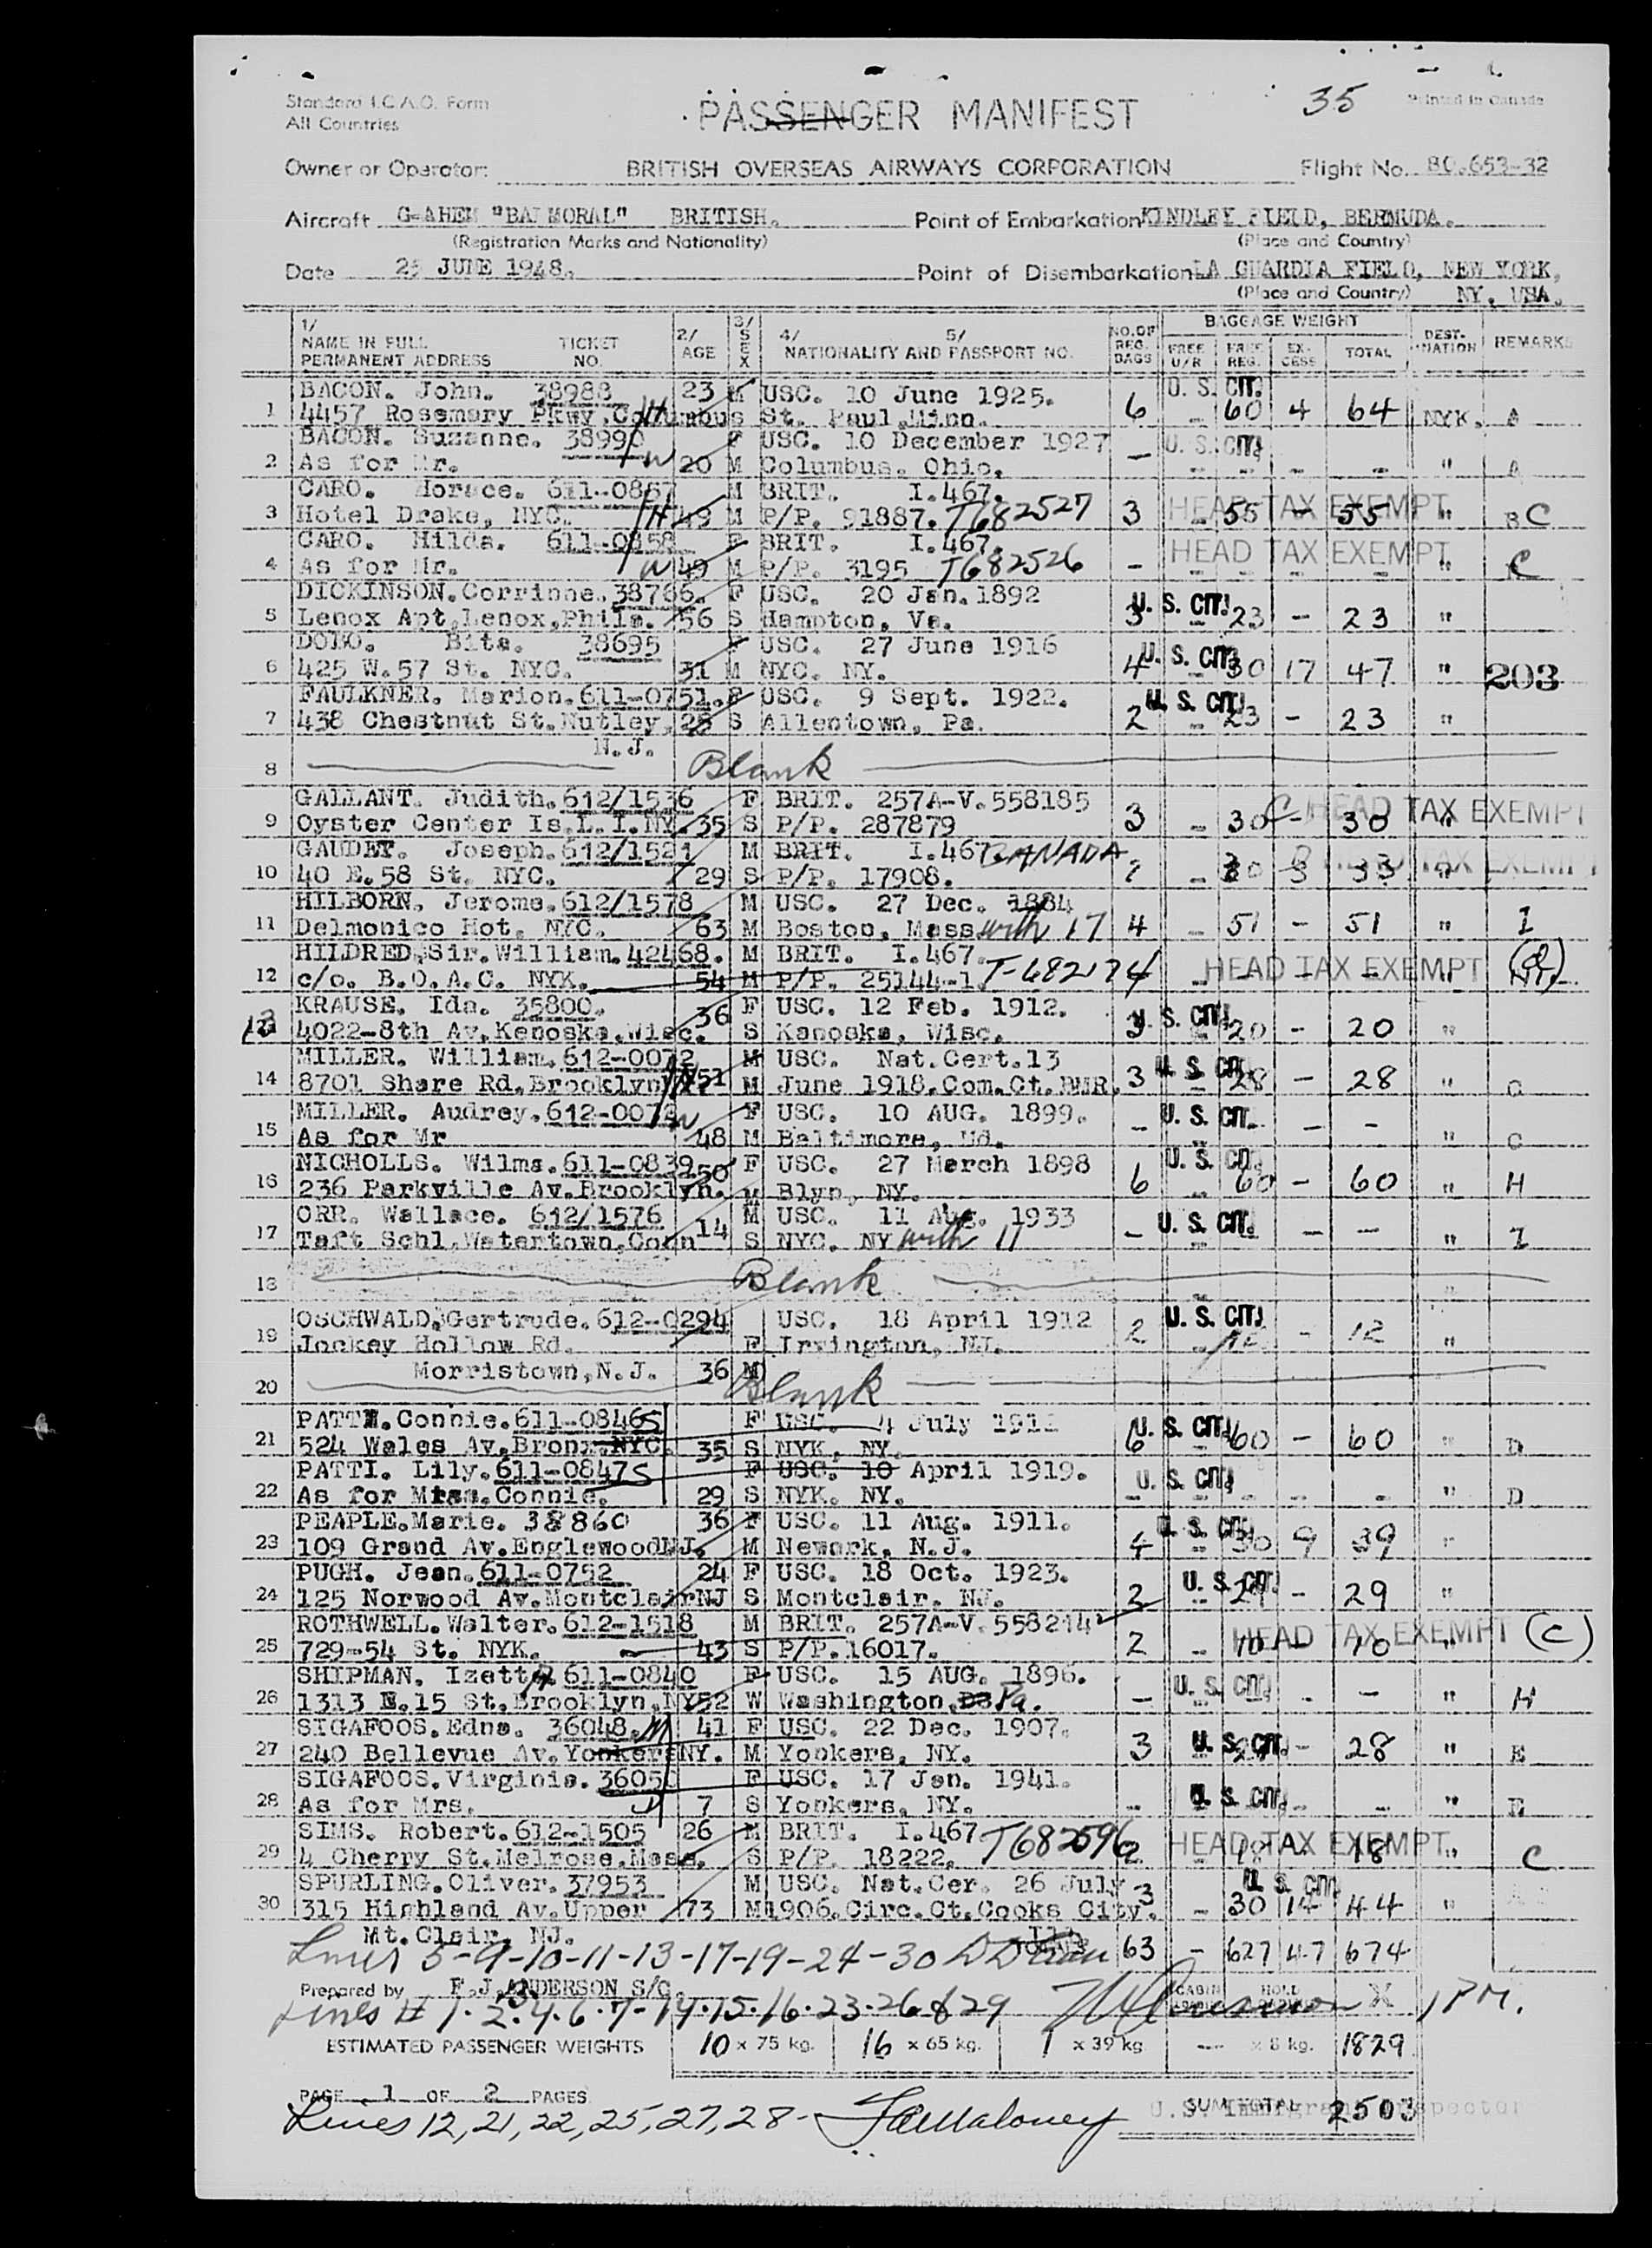 35
Standard I.C.A.O. Form
All Countries
PASSENGER MANIFEST
Printed in Canada
Owner or Operator: BRITISH OVERSEAS AIRWAYS CORPORATION Flight No. BO.653-32
Aircraft G-AHEM "BALMORAL" BRITISH. Point of Embarkation KINDLEY FIELD, BERMUDA.
(Registration Marks and Nationality) (Place and Country)
Date 25 JUNE 1948. Point of Disembarkation LA GUARDIA FIELD, NEW YORK,
(Place and Country) NY. USA.
1/ NAME IN FULL PERMANENT ADDRESS TICKET NO. 2/ AGE 3/ SEX 4/ 5/ NATIONALITY AND PASSPORT NO. NO. OF REG. BAGS BAGGAGE WEIGHT FREE U/R FREE REG. EX-CESS TOTAL DEST-INATION REMARKS
BACON. John. 38988 23 M USC. 10 June 1925. U. S. CIT.
1 4457 Rosemary Pkwy. Columbus St. Paul, Minn. 6 60 4 64 NYK. A
BACON. Suzanne. 38990 F USC. 10 December 1927 U. S. CIT.
2 As for Mr. W 20 M Columbus. Ohio. - - " A
CARO. Horace. 611-0857 M BRIT. I.467.
3 Hotel Drake, NYC. H 49 M P/P. 91887. T682527 3 HEAD TAX EXEMPT 55 - 55 " C
CARO. Hilda. 611-0858 F BRIT. I.467.
4 As for Mr. W 49 M P/P. 3195 T682526 - HEAD TAX EXEMPT " C
DICKINSON. Corrinne. 38766. F USC. 20 Jan. 1892
5 Lenox Apt, Lenox, Phila. 56 S Hampton, Va. 3 U. S. CIT. 23 - 23 "
38695 F USC. 27 June 1916
6 425 W.57 St. NYC. 31 M NYC. NY. 4 U. S. CIT. 30 17 47 " 203
FAULKNER. Marion. 611-0751. F USC. 9 Sept. 1922.
7 438 Chestnut St. Nutley, 25 S Allentown, Pa. 2 U. S. CIT. 23 - 23 "
N.J.
8 Blank
GALLANT. Judith. 612/1536 F BRIT. 257A-V.558185
9 Oyster Center Is. L.I.NY. 35 S P/P. 287879 3 30 - 30 C HEAD TAX EXEMPT
GAUDET. Joseph. 612/1521 M BRIT. I.467 CANADA
10 40 E.58 St. NYC. 29 S P/P. 17908. 30 3 33 HEAD TAX EXEMPT
HILBORN. Jerome. 612/1578 M USC. 27 Dec. 1884
11 Delmonico Hot. NYC. 63 M Boston, Mass with 17 4 51 - 51 " I
HILDRED. Sir. William. 42468. M BRIT. I.467.
12 c/o. B.O.A.C. NYK. 54 M P/P. 25144-1. T-682174 HEAD TAX EXEMPT
KRAUSE. Ida. 35800. 36 F USC. 12 Feb. 1912.
13 4022-8th Av. Kenoska, Wisc. S Kanoska, Wisc. 3 U. S. CIT. 20 - 20 "
MILLER. William. 612-0072 M USC. Nat. Cert. 13
14 8701 Share Rd. Brooklyn 51 M June 1918. Com. Ct. 3 U. S. CIT. 28 - 28 " C
MILLER. Audrey. 612-0073 W F USC. 10 AUG. 1899.
15 As for Mr 48 M Baltimore, Md. - U. S. CIT. - - " C
NICHOLLS. Wilma. 611-0839 50 F USC. 27 March 1898
16 236 Parkville Av. Brooklyn. M Blyn, NY. 6 U. S. CIT. 60 - 60 " H
ORR. Wallace. 612/1576 14 M USC. 11 Aug. 1933
17 Taft Schl, Watertown, Conn S NYC. NY with 11 - U. S. CIT. - - " I
18 Blank
OSCHWALD, Gertrude. 612-0294 USC. 18 April 1912
19 Jockey Hollow Rd. F Irvington, NJ. 2 U. S. CIT. 12 - 12 "
Morristown, N.J. 36 M
20 Blank
PATTI. Connie. 611-0846 S F USC. 4 July 1911
21 524 Wales Av. Bronx. NYC. 35 S NYK, NY. 6 U. S. CIT. 60 - 60 " D
PATTI. Lily. 611-0847 S F USC. 10 April 1919.
22 As for Miss. Connie. 29 S NYK. NY. U. S. CIT. - - " D
PEAPLE. Marie. 38860 36 F USC. 11 Aug. 1911.
23 109 Grand Av. Englewood NJ. M Newark, N.J. 4 U. S. CIT. 30 9 39 "
PUGH. Jean. 611-0752 24 F USC. 18 Oct. 1923.
24 125 Norwood Av. Montclair NJ S Montclair. NJ. 2 U. S. CIT. 29 - 29 "
ROTHWELL. Walter. 612-1518 M BRIT. 257A-V.558214
25 729-54 St. NYK. 43 S P/P. 16017. 2 HEAD TAX EXEMPT 10 - 10 " (C)
SHIPMAN. Izetta 611-0840 F USC. 15 AUG. 1896.
26 1313 E.15 St. Brooklyn, NY 52 W Washington, Pa. - U. S. CIT. - - " H
SIGAFOOS. Edna. 36048. M 41 F USC. 22 Dec. 1907.
27 240 Bellevue Av. Yonkers NY. M Yonkers, NY. 3 U. S. CIT. - 28 " E
SIGAFOOS. Virginia. 36050 F USC. 17 Jan. 1941.
28 As for Mrs. 7 S Yonkers, NY. - U. S. CIT. - - " E
SIMS. Robert. 612-1505 26 M BRIT. I.467 T682596
29 4 Cherry St. Melrose, Mass. S P/P. 18222. 2 HEAD TAX EXEMPT 18 - 18 " C
SPURLING. Oliver. 37953 M USC. Nat. Cer. 26 July
30 315 Highland Av. Upper 73 M 1906. Circ. Ct. Cooks City. 3 U. S. CIT. 30 14 44 "
Mt. Clair. NJ. 63 - 627 47 674
Lines 5-9-10-11-13-17-19-24-30
Prepared by F.J. ANDERSON S/C. CABIN HOLD X
Lines # 1.2.3.4.6.7-14.15.16.23.26 & 29 1 PM.
ESTIMATED PASSENGER WEIGHTS 10 x 75 kg. 16 x 65 kg. 1 x 39 kg. --- x 8 kg. 1829
PAGE 1 OF 2 PAGES
SUM TOTAL 2503
U.S. Immigrant Inspector
Lines 12, 21, 22, 25, 27, 28 -